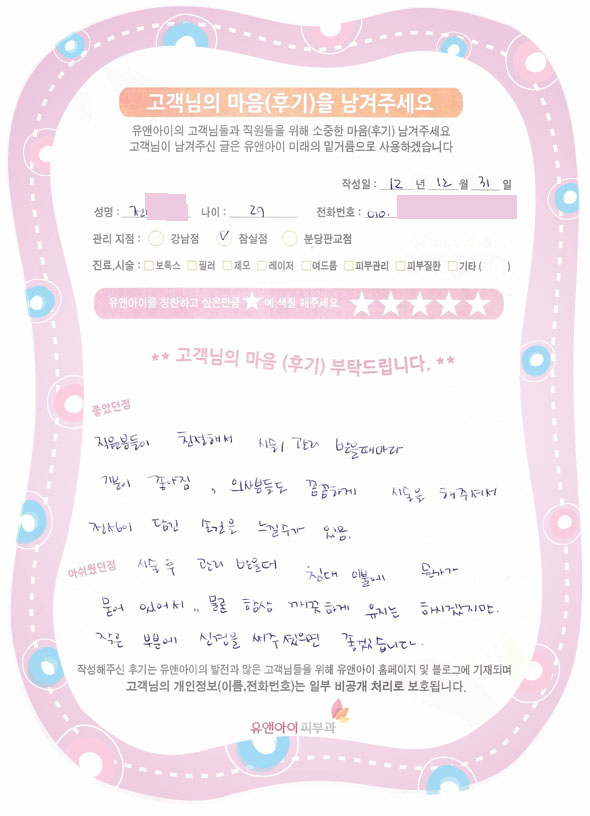 고객님의 마음(후기)을 남겨주세요
유앤아이의 고객님들과 직원들을 위해 소중한 마음(후기) 남겨주세요
고객님이 남겨주신 글은 유앤아이 미래의 밑거름으로 사용하겠습니다
작성일 : 12 년 12 월 31 일
성명 : 나이 : 29 전화번호 : 010.
관리 지점 : 강남점 ✓ 잠실점 분당판교점
진료,시술 : 보톡스 필러 제모 레이저 여드름 피부관리 피부질환 기타 ( )
유앤아이를 칭찬하고 싶은만큼 ★ 에 색칠 해주세요. ★★★★★
** 고객님의 마음 (후기) 부탁드립니다. **
좋았던점
직원분들이 친절해서 시술/관리 받을때마다
기분이 좋아짐, 의사분들도 꼼꼼하게 시술을 해주셔서
정성이 담긴 손길을 느낄수가 있음.
아쉬웠던점 시술 후 관리 받을때 침대 이불에 뭔가가
묻어 있어서,, 물론 항상 깨끗하게 유지는 하시겠지만.
작은 부분에 신경을 써주셨으면 좋겠습니다.
작성해주신 후기는 유앤아이의 발전과 많은 고객님들을 위해 유앤아이 홈페이지 및 블로그에 기재되며
고객님의 개인정보(이름,전화번호)는 일부 비공개 처리로 보호됩니다.
유앤아이피부과